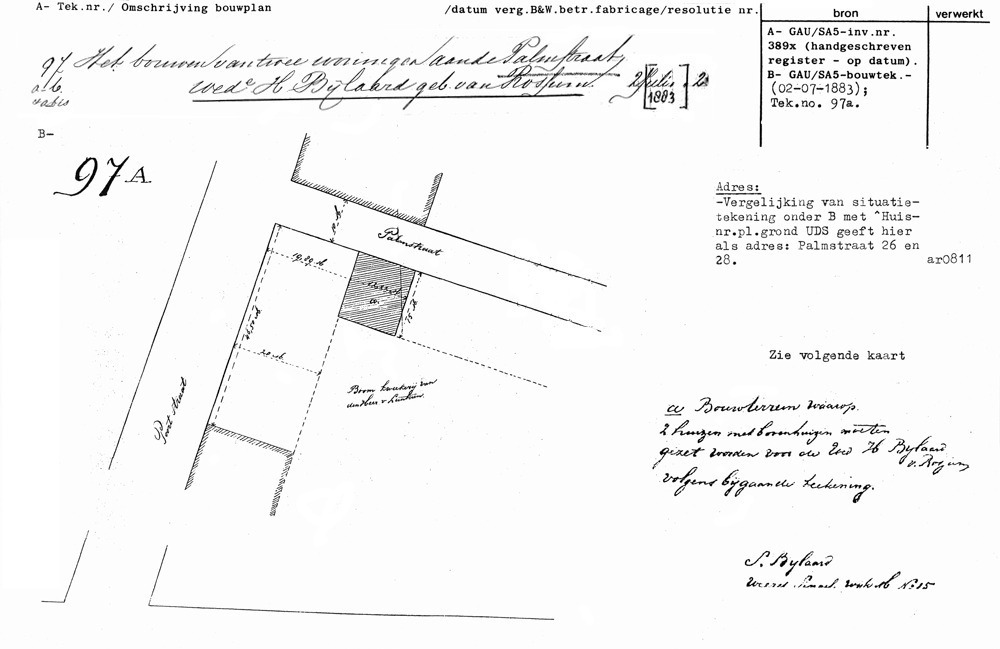 A- Tek.nr./ Omschrijving bouwplan
/datum verg.B&W.betr.fabricage/resolutie nr.
bron
verwerkt
A- GAU/SA5-inv.nr.
389x (handgeschreven
register - op datum).
B- GAU/SA5-bouwtek.-
(02-07-1883);
Tek.no. 97a.
97 Het bouwen van twee woningen aan de Palmstraat,
a.b.
wed H Bylaard geb. van Rossum.
2 Julij
[1883]
B-
97 A
Adres:
-Vergelijking van situatie-
tekening onder B met ^Huis-
nr.pl.grond UDS geeft hier
als adres: Palmstraat 26 en
28.
ar0811
Palmstraat
19.20 M
a.
20 M.
Boom kweekerij van
den Heer v Lunteren.
Poort straat
Zie volgende kaart
a Bouwterrein waarop.
2 huizen met bovenhuizen moeten
gezet worden voor de Wed H Bylaard
v. Rossum
volgens bijgaande teekening.
S. Bylaard
Wijk M No 15